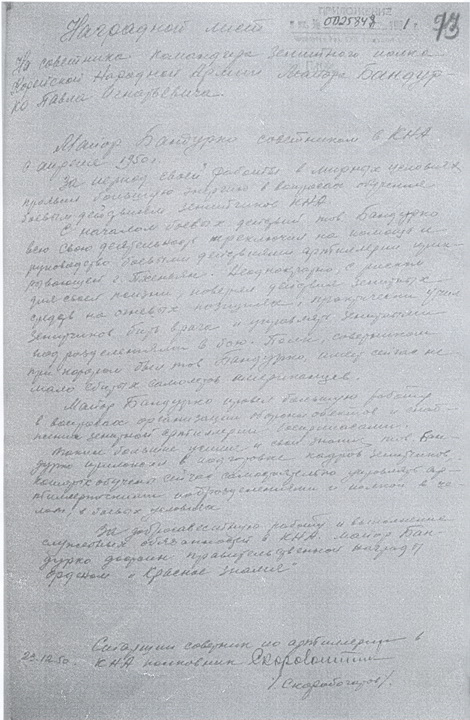 Наградной лист 0025848 1. 73
На советника командира зенитного полка
Корейской Народной Армии Майора Бандур-
ко Павла Игнатьевича.
Майор Бандурко советником в КНА
с апреля 1950г.
За период своей работы в мирных условиях
проявил большую энергию в вопросах обучения
боевым действиям зенитчиков КНА.
С началом боевых действий тов. Бандурко
всю свою деятельность переключил на помощь и
руководство боевыми действиями артиллерии
г. Пхеньян. Неоднократно, с риском
для своей жизни, действия зенитных
на огневых позициях и практически учил
зенитчиков бить врага и управлять зенитными
подразделениями в бою. Полк, советником
при котором был тов. Бандурко, имеет сейчас не-
мало сбитых самолетов американцев.
Майор Бандурко провел большую работу
в вопросах организации объектов и снаб-
жения зенитной артиллерии боеприпасами.
Также большие усилия и свои знания, тов. Бан-
дурко приложил в подготовке кадров зенитчиков,
которые обучены сейчас самостоятельно управлять ар-
тиллерийскими подразделениями и полком в це-
лом, в боевых условиях.
За добросовестную работу и выполнение
служебных обязанностей в КНА майор Бан-
дурко достоин правительственной награды
орденом "Красное Знамя"
Старший советник по артиллерии в
23.12.50. КНА полковник
/Скоробогатов/.